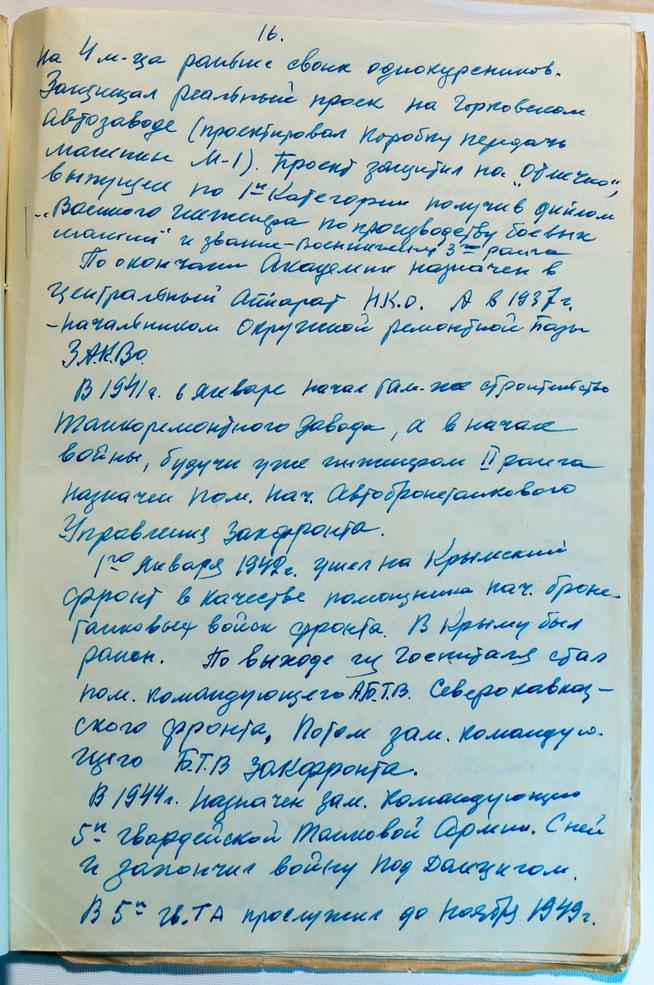 16.
на 4 м-ца раньше своих однокурсников.
Защищал реальный проек на Горьковском
Автозаводе (проектировал Коробку передачь
машины М-1). Проект защитил на „Отлично",
выпущен по 1й Категории получив диплом
„Военного инженера по производству боевых
машин" и звание - Военинженер 3го ранга
По окончании Академии назначен в
Центральный Аппарат Н.К.О. А в 1937 г.
- начальником Окружной ремонтной базы
ЗАКВО.
В 1941 г. в январе начал там-же строительство
Танкоремонтного завода, а в начале
войны, будучи уже инженером II ранга
назначен пом. нач. Автобронетанкового
Управления Закфронта.
1го Января 1942 г. ушел на Крымский
фронт в качестве помощника нач. броне-
танковых войск фронта. В Крыму был
ранен. По выходе из госпиталя стал
пом. командующего А.Б.Т.В. Северокавказ-
ского фронта, Потом зам. командую-
щего Б.Т.В Закфронта.
В 1944 г. назначен зам. командующего
5й гвардейской Танковой Армии. С ней
и закончил войну под Данцигом.
В 5й гв. ТА прослужил до ноября 1949 г.